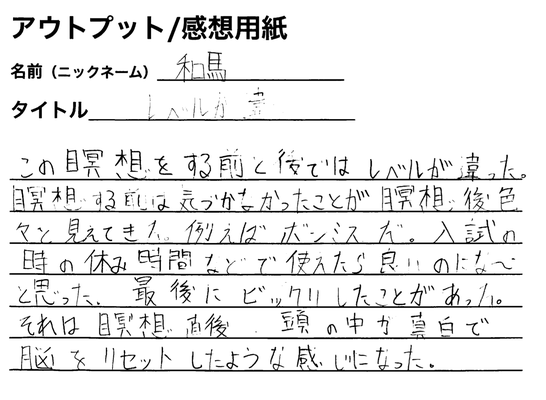 アウトプット/感想用紙
名前（ニックネーム） 和馬
タイトル レベルが違
この瞑想をする前と後ではレベルが違った。
瞑想する前は気づかなかったことが瞑想後色
々と見えてきた。例えばボンミスだ。入試の
時の休み時間などで使えたら良いのにな〜
と思った。最後にビックリしたことがあった。
それは瞑想直後、頭の中が真白で
脳をリセットしたような感じになった。